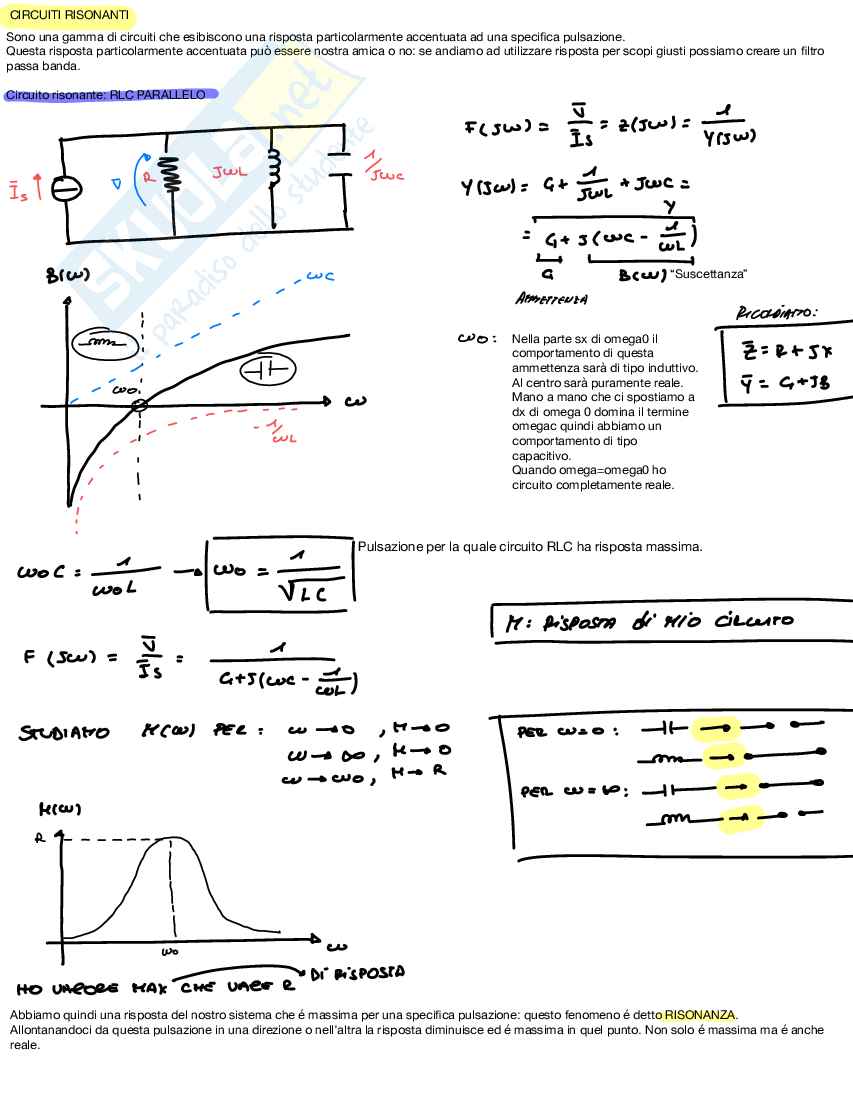 CIRCUITI RISONANTI
Sono una gamma di circuiti che esibiscono una risposta particolarmente accentuata ad una specifica pulsazione.
Questa risposta particolarmente accentuata può essere nostra amica o no: se andiamo ad utilizzare risposta per scopi giusti possiamo creare un filtro
passa banda.
Circuito risonante: RLC PARALLELO
F(jω) = V̅/I̅s = Z(jω) = 1/Y(jω)
I̅s V R jωL 1/jωC
Y(jω) = G + 1/jωL + jωC =
Y
= G + j(ωC - 1/ωL)
G B(ω) "Suscettanza"
AMMETTENZA
SKUOLA.net
il paradiso dello studente
B(ω)
ωC
ω0
ω
-1/ωL
ω0: Nella parte sx di omega0 il
comportamento di questa
ammettenza sarà di tipo induttivo.
Al centro sarà puramente reale.
Mano a mano che ci spostiamo a
dx di omega 0 domina il termine
omegac quindi abbiamo un
comportamento di tipo
capacitivo.
Quando omega=omega0 ho
circuito completamente reale.
RICORDIAMO:
Z̅ = R + jX
Y̅ = G + jB
ω0C = 1/ω0L → ω0 = 1/√LC
Pulsazione per la quale circuito RLC ha risposta massima.
M: RISPOSTA di MIO CIRCUITO
F(jω) = V̅/I̅s = 1/G+j(ωC - 1/ωL)
STUDIAMO M(ω) PER: ω → 0, M → 0
ω → ∞, M → 0
ω → ω0, M → R
PER ω=0:
PER ω=∞:
M(ω)
R
ω0
ω
HO VALORE MAX CHE VALE R DI RISPOSTA
Abbiamo quindi una risposta del nostro sistema che é massima per una specifica pulsazione: questo fenomeno é detto RISONANZA.
Allontanandoci da questa pulsazione in una direzione o nell'altra la risposta diminuisce ed é massima in quel punto. Non solo é massima ma é anche
reale.